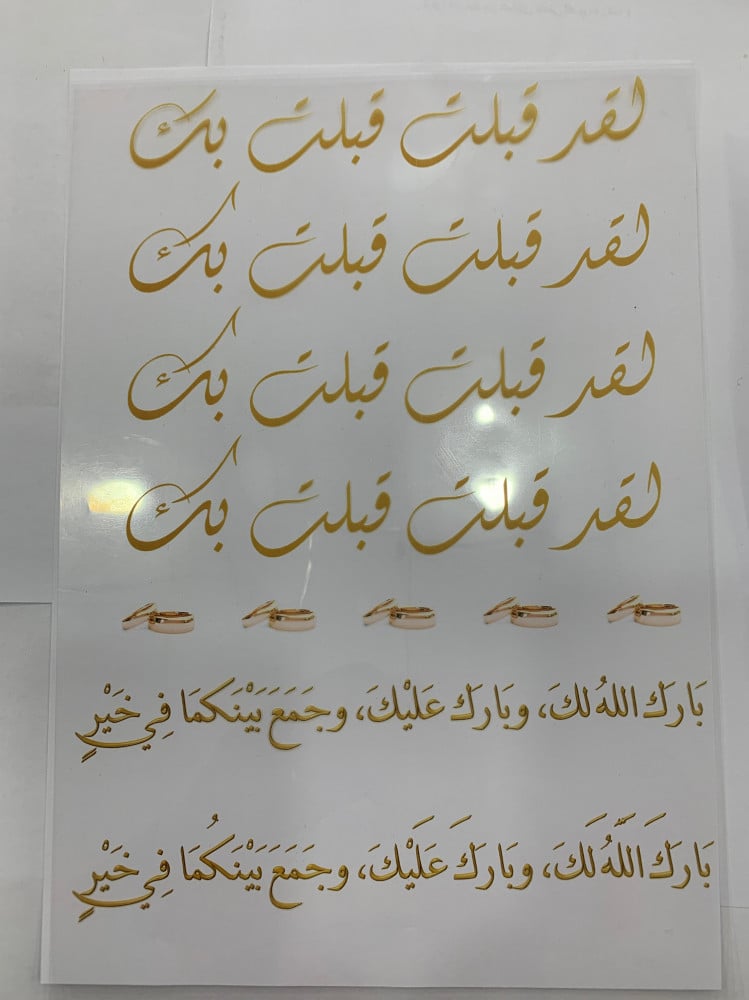 لقد قبلت قبلت بك
لقد قبلت قبلت بك
لقد قبلت قبلت بك
لقد قبلت قبلت بك
بَارَكَ اللهُ لكَ، وبَاركَ عَليْكَ، وجَمَعَ بَيْنَكمَا فِي خَيْرٍ
بَاركَ اَللَّهُ لَكَ، وبَاركَ عَلَيْكَ، وجَمَعَ بَيْنَكُمَا فِي خَيْرٍ